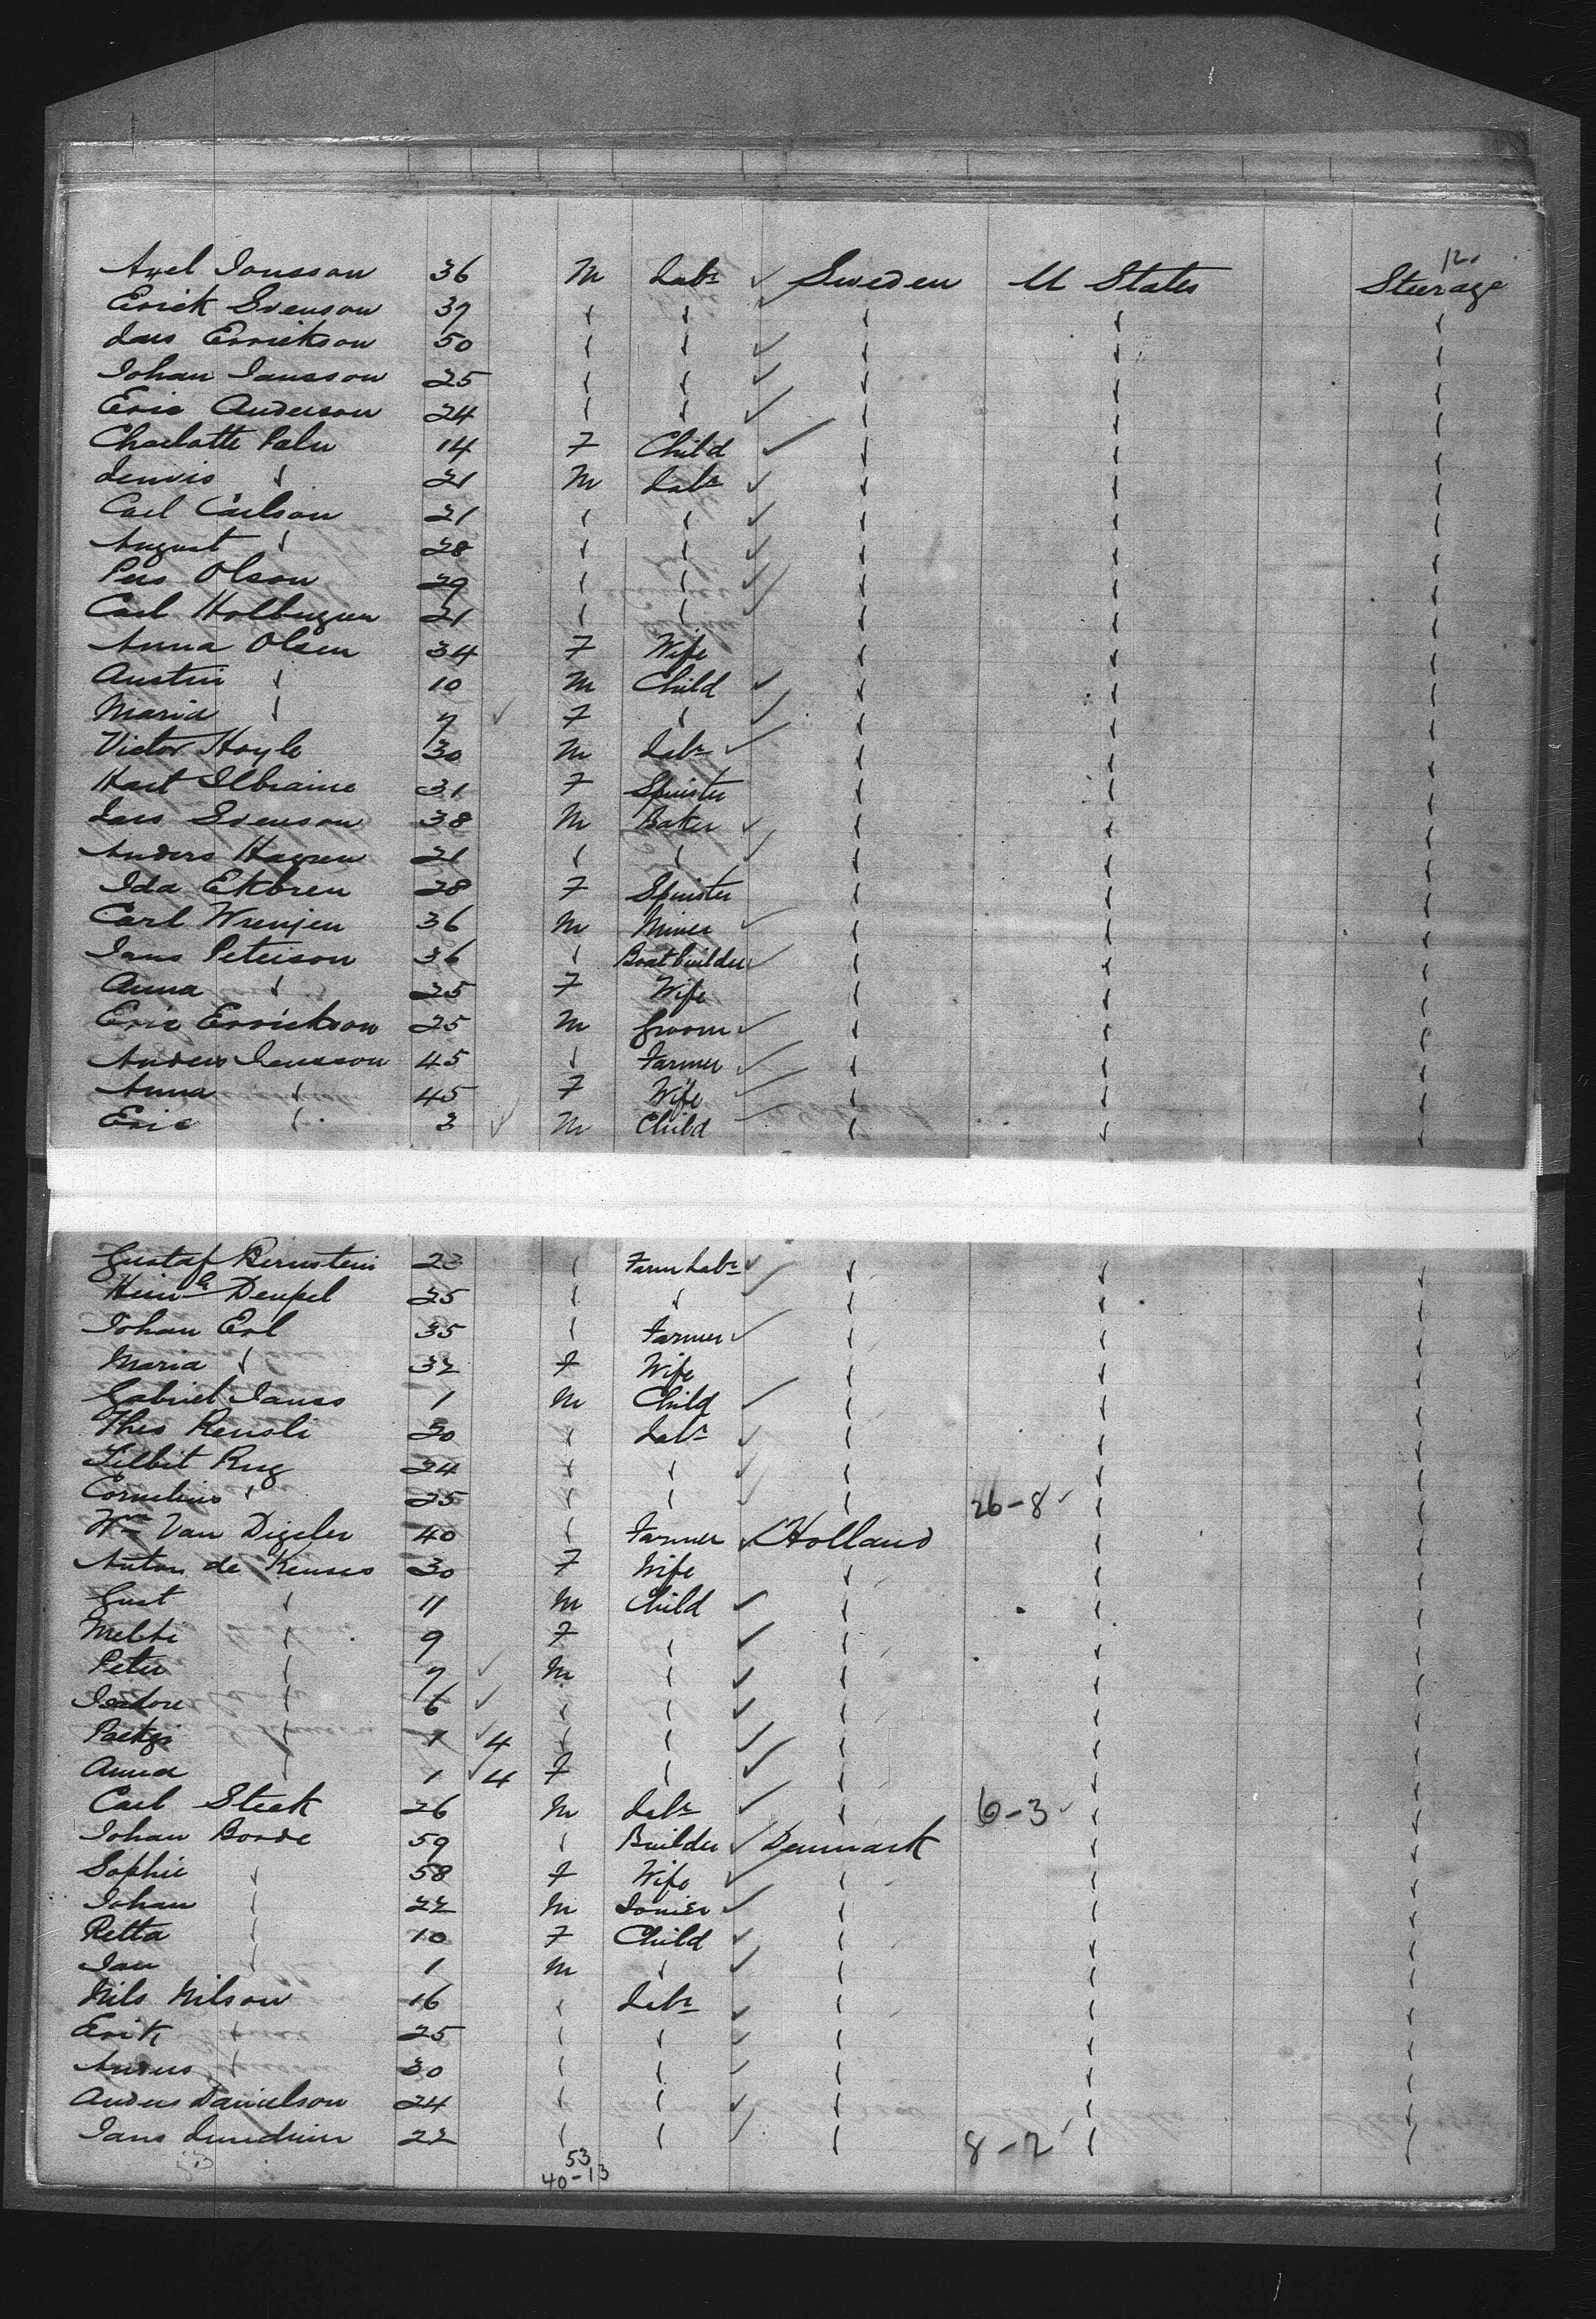 12.
Axel Jonsson 36 M Labr ✓ Sweden U States Steerage
Erick Svenson 37 " " ✓ " " "
Lars Errickson 50 " " ✓ " " "
Johan Jansson 25 " " ✓ " " "
Eric Anderson 24 " " ✓ " " "
Charlotte Palm 14 F Child ✓ " " "
" 21 M Labr ✓ " " "
Carl Carlson 21 " " ✓ " " "
August " 28 " " ✓ " " "
Pers Olson 29 " " ✓ " " "
Carl 21 " " ✓ " " "
Anna Olsen 34 F Wife " " "
Austin " 10 M Child ✓ " " "
Maria " 7 ✓ F " ✓ " " "
Victor Hoyle 30 M Labr ✓ " " "
Hart 31 F Spinster " " "
Lars Svenson 38 M Baker ✓ " " "
Anders Hagren 21 " " ✓ " " "
Ida Ekbren 28 F Spinster " " "
Carl 36 M Miner ✓ " " "
Jans Peterson 36 " Boatbuilder ✓ " " "
Anna " 25 F Wife " " "
Eric Errickson 25 M Groom ✓ " " "
Anders Jansson 45 " Farmer ✓ " " "
Anna " 45 F Wife ✓ " " "
Eric " 3 ✓ M Child ✓ " " "
Gustaf Bernstein 23 " Farm Labr ✓ " " "
25 " " ✓ " " "
Johan Erl 35 " Farmer ✓ " " "
Maria " 32 F Wife " " "
Gabriel Janss 1 M Child ✓ " " "
Theo 30 " Labr ✓ " " "
24 " " ✓ " " "
Cornelius " 25 " " ✓ " 26-8 ✓ " "
Wm Van Digeler 40 " Farmer ✓ Holland " "
Anton de 30 F Wife " " "
Gust " 11 M Child ✓ " " "
" 9 F " ✓ " " "
Peter " 7 ✓ M " ✓ " " "
Isadore " 6 ✓ " " ✓ " " "
" 1 ✓ 4 " " ✓ " " "
Anna " 1 ✓ 4 F " ✓ " " "
Carl Steck 26 M Labr ✓ " 6-3 ✓ " "
Johan Borde 59 " Builder ✓ Denmark " "
Sophie " 58 F Wife ✓ " " "
Johan " 22 M Joiner ✓ " " "
Retta " 10 F Child ✓ " " "
Jan " 1 M " ✓ " " "
Nils Nilson 16 " Labr ✓ " " "
Erik " 25 " " ✓ " " "
Anders " 30 " " ✓ " " "
Anders Danielson 24 " " ✓ " " "
Jans Lundium 22 " " ✓ " 8-2 ✓ " "
53
40-13